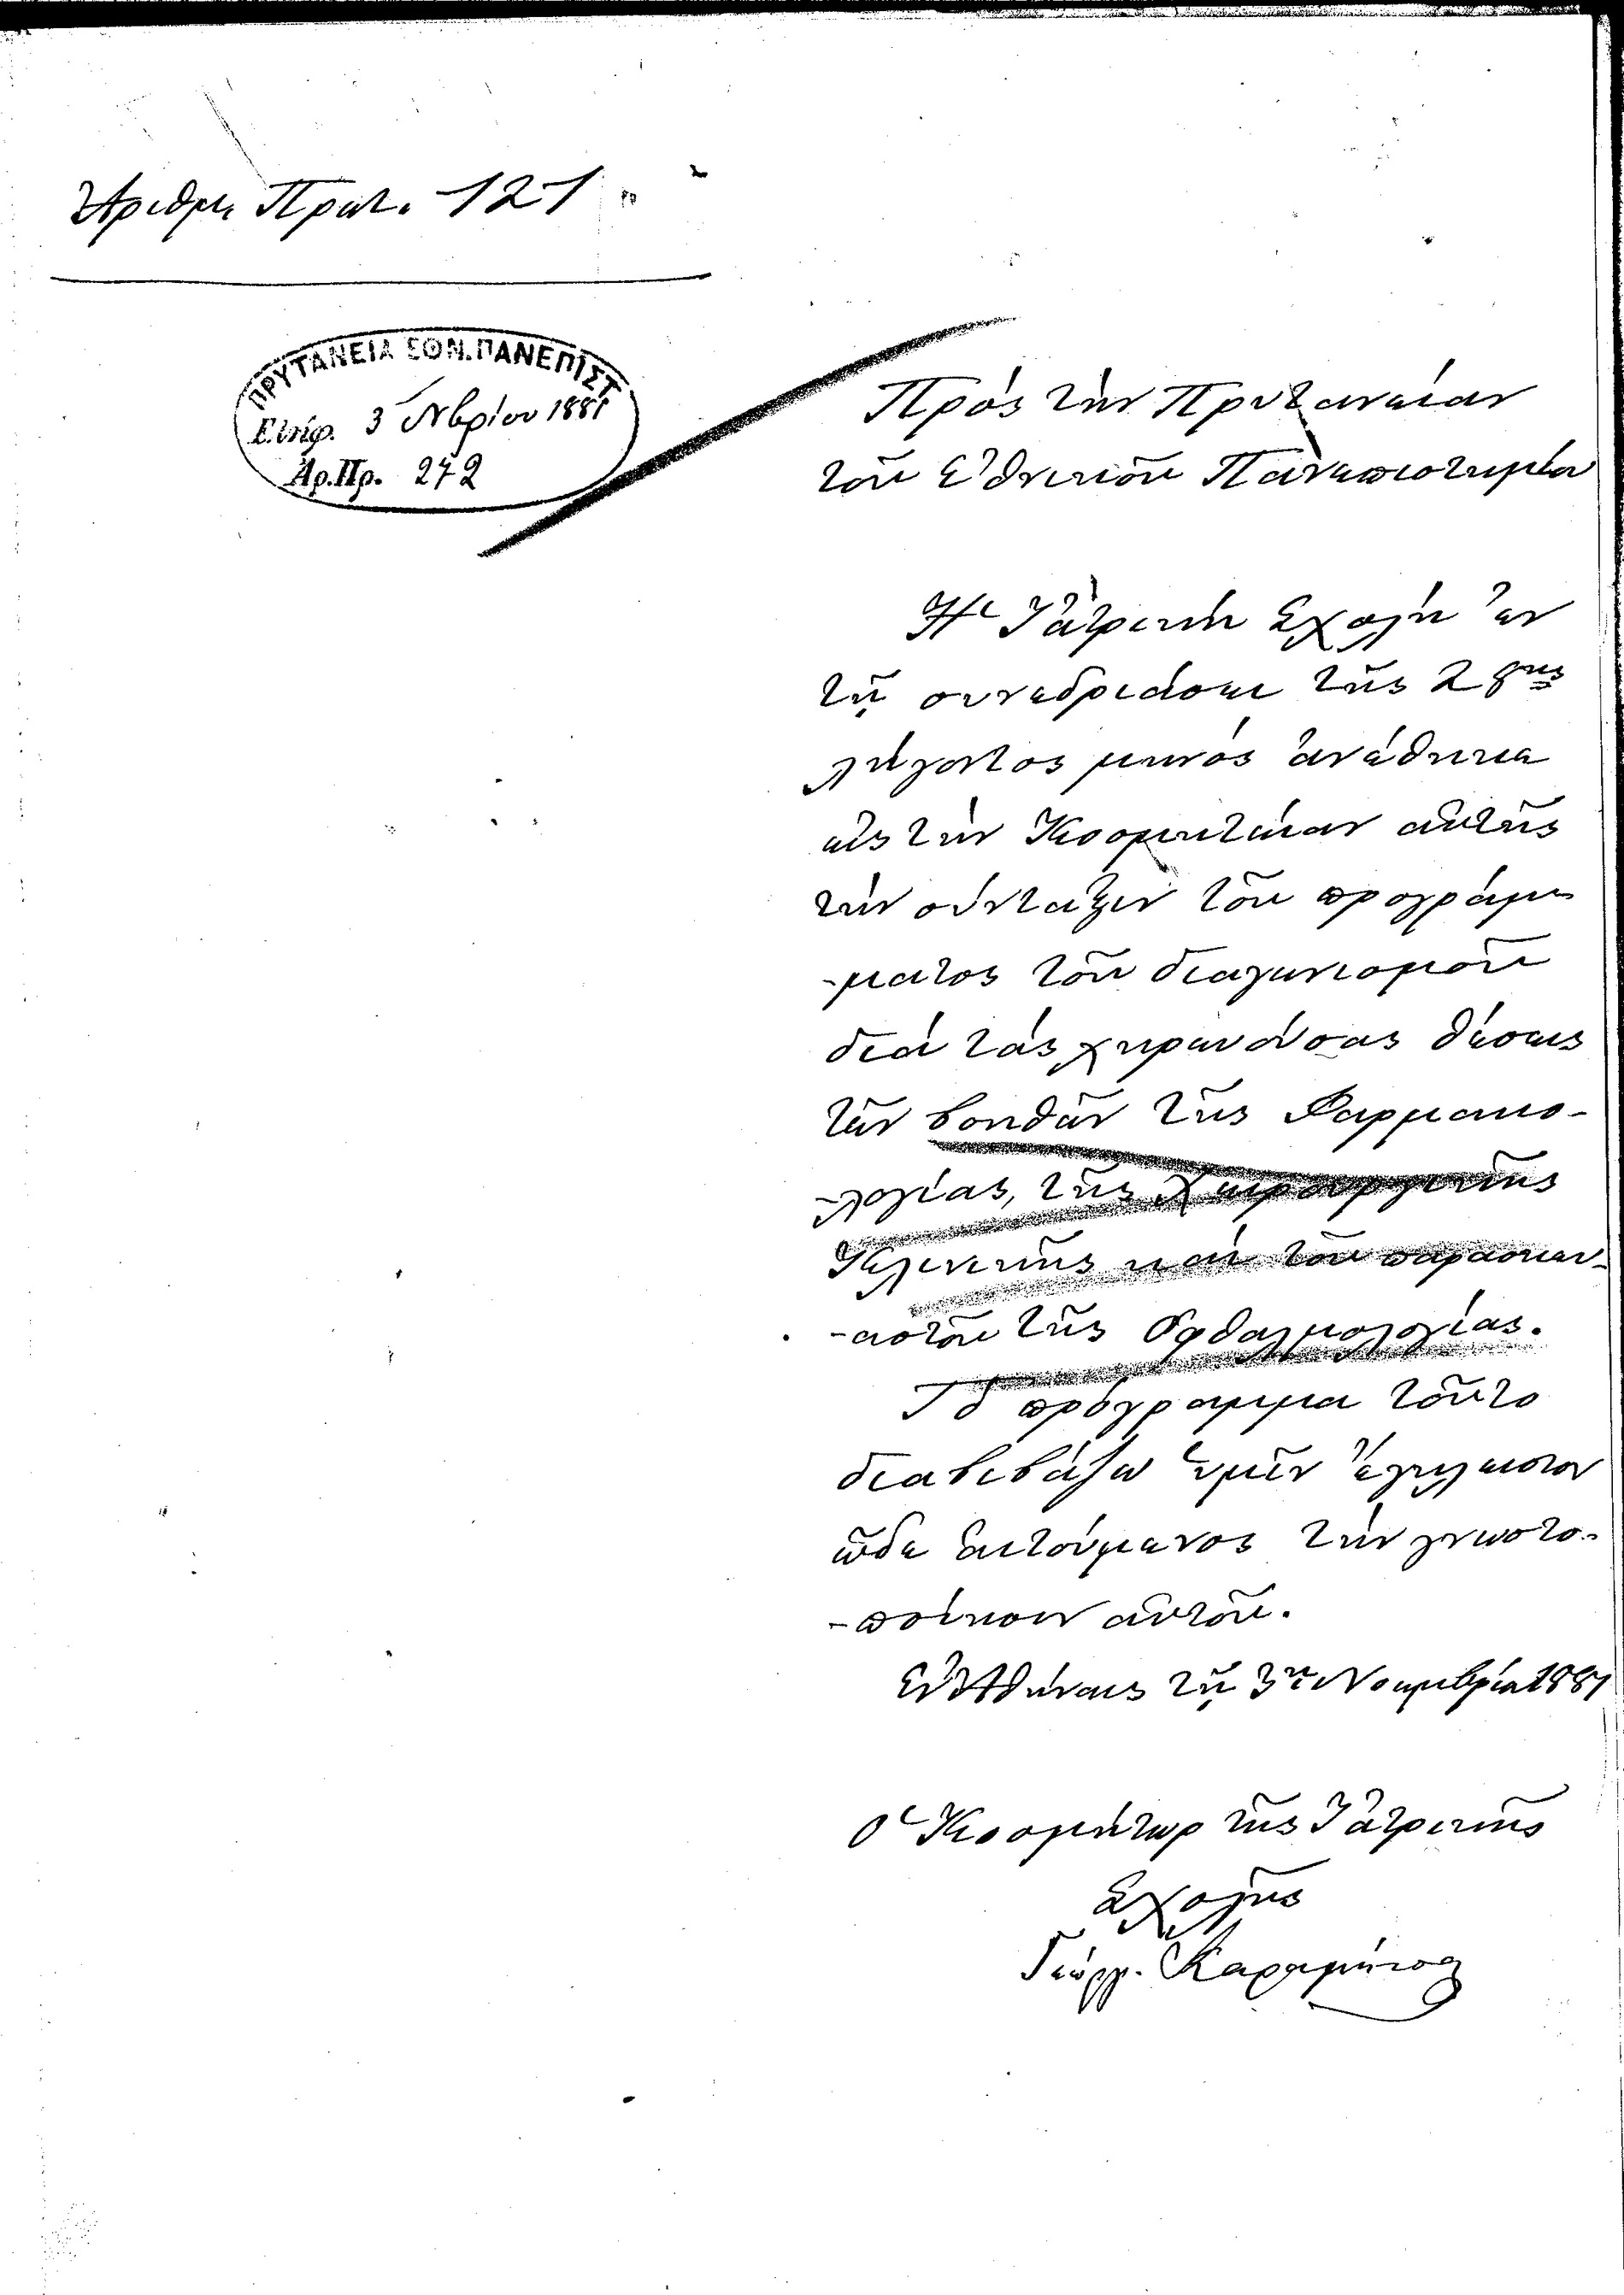 Ἀριθμ. Πρωτ. 121
ΠΡΥΤΑΝΕΙΑ ΕΘΝ. ΠΑΝΕΠΙΣΤ.
Εἰσήχ. 3 Νβρίου 1881
Ἀρ. Πρ. 272
Πρὸς τὴν Πρυτανείαν
τοῦ Ἐθνικοῦ Πανεπιστημίου
Ἡ Ἰατρικὴ Σχολὴ ἐν
τῇ συνεδριάσει τῆς 28ης
λήγοντος μηνὸς ἀνέθηκε
εἰς τὴν Κοσμητείαν αὐτῆς
τὴν σύνταξιν τοῦ προγράμ-
-ματος τοῦ διαγωνισμοῦ
διὰ τὰς χηρευούσας θέσεις
τῶν βοηθῶν τῆς Φαρμακο-
-λογίας, τῆς Χειρουργικῆς
Κλινικῆς καὶ τοῦ παρασκευ-
-αστοῦ τῆς Ὀφθαλμολογίας.
Τὸ πρόγραμμα τοῦτο
διαβιβάζω ὑμῖν ἐγκλειστον
ὧδε αἰτούμενος τὴν γνωστο-
-ποίησιν αὐτοῦ.
Ἐν Ἀθήναις τῇ 3ῃ Νοεμβρίου 1881
Ὁ Κοσμήτωρ τῆς Ἰατρικῆς
Σχολῆς
Γεώργ. Καραμήτσας